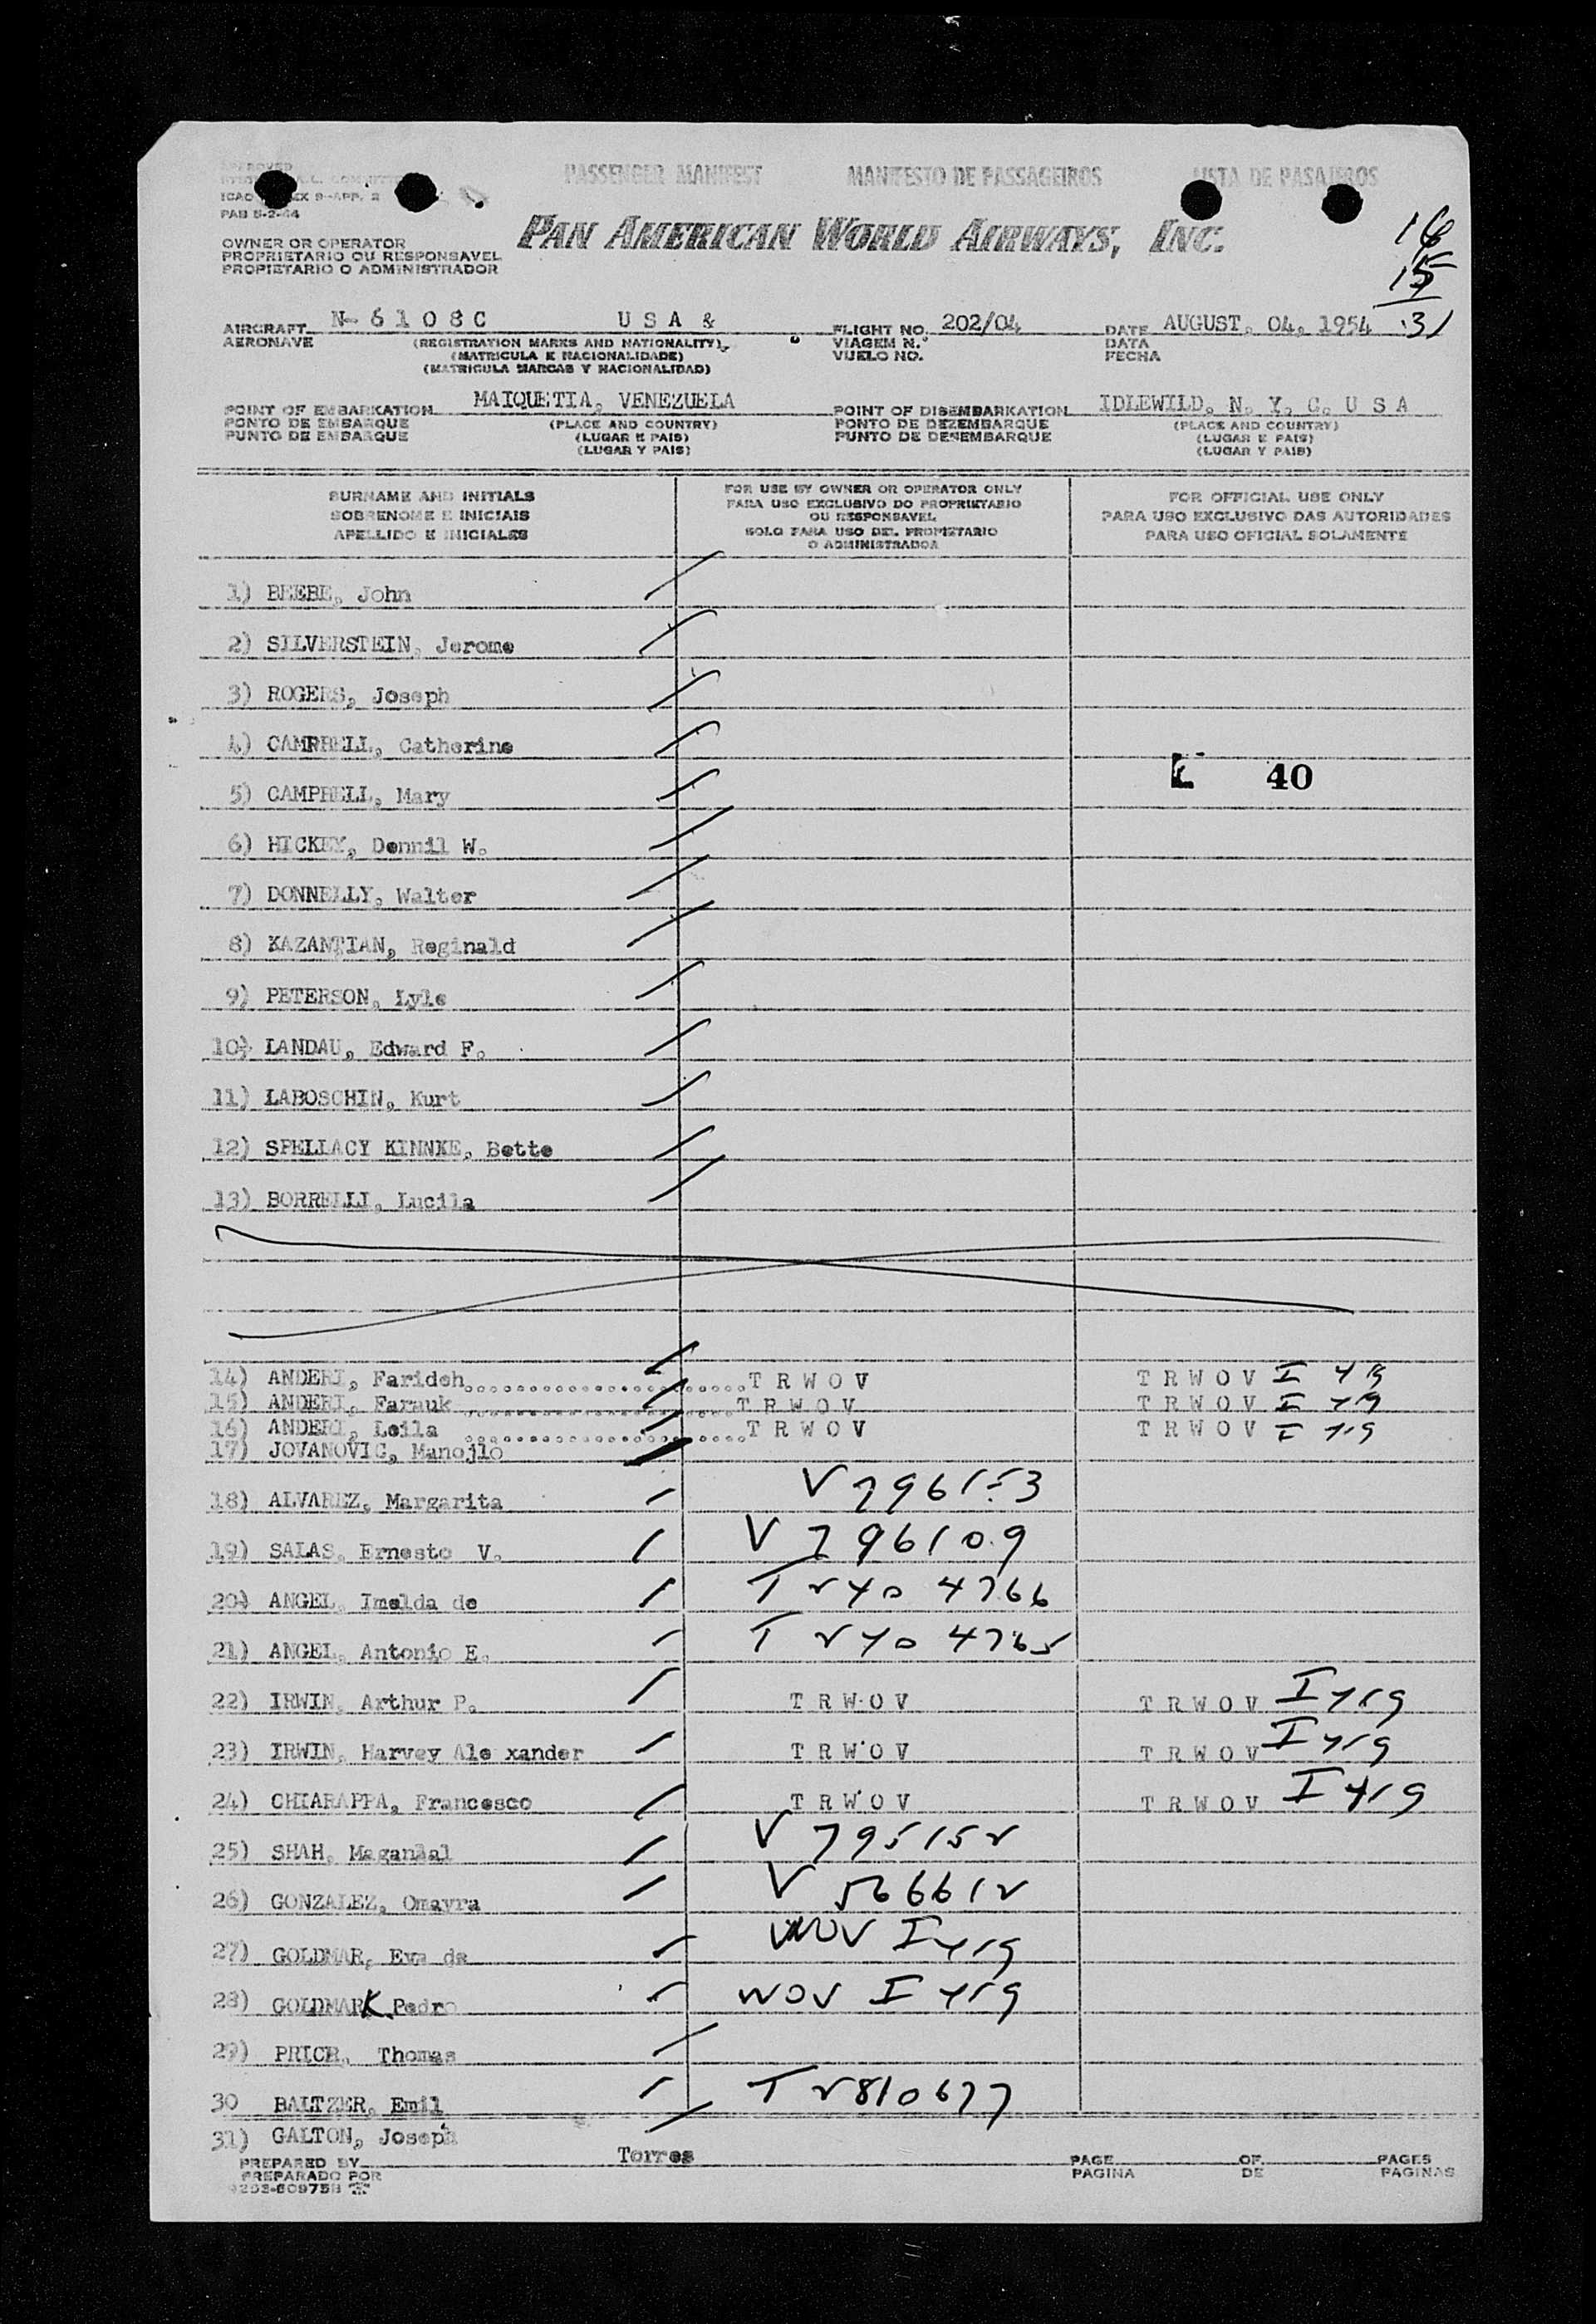 PASSENGER MANIFEST MANIFESTO DE PASSAGEIROS LISTA DE PASAJEROS
ICAO ANNEX 9-APP. 2
PAB 5-2-44
PAN AMERICAN WORLD AIRWAYS, INC.
16
15
31
OWNER OR OPERATOR
PROPRIETARIO OU RESPONSAVEL
PROPIETARIO O ADMINISTRADOR
AIRCRAFT N-6108C USA & FLIGHT NO. 202/04 DATE AUGUST, 04, 1954
AERONAVE (REGISTRATION MARKS AND NATIONALITY) VIAGEM N.° DATA
(MATRICULA E NACIONALIDADE) VUELO NO. FECHA
(MATRICULA MARCAS Y NACIONALIDAD)
POINT OF EMBARKATION MAIQUETIA, VENEZUELA POINT OF DISEMBARKATION IDLEWILD, N. Y. C. U S A
PONTO DE EMBARQUE (PLACE AND COUNTRY) PONTO DE DEZEMBARQUE (PLACE AND COUNTRY)
PUNTO DE EMBARQUE (LUGAR E PAIS) PUNTO DE DESEMBARQUE (LUGAR E PAIS)
(LUGAR Y PAIS) (LUGAR Y PAIS)
SURNAME AND INITIALS
SOBRENOME E INICIAIS
APELLIDO E INICIALES
FOR USE BY OWNER OR OPERATOR ONLY
PARA USO EXCLUSIVO DO PROPRIETARIO
OU RESPONSAVEL
SOLO PARA USO DEL PROPIETARIO
O ADMINISTRADOR
FOR OFFICIAL USE ONLY
PARA USO EXCLUSIVO DAS AUTORIDADES
PARA USO OFICIAL SOLAMENTE
1) BEEBE, John
2) SILVERSTEIN, Jerome
3) ROGERS, Joseph
4) CAMPBELL, Catherine
40
5) CAMPBELL, Mary
6) HICKEY, Dennil W.
7) DONNELLY, Walter
8) KAZANTIAN, Reginald
9) PETERSON, Lyle
10) LANDAU, Edward F.
11) LABOSCHIN, Kurt
12) SPELLACY KINNKE, Bette
13) BORRELLI, Lucila
14) ANDERI, Farideh T R W O V T R W O V I 4 19
15) ANDERI, Farauk T R W O V T R W O V I 419
16) ANDERI, Leila T R W O V T R W O V I 419
17) JOVANOVIC, Manojlo
18) ALVAREZ, Margarita V 796153
19) SALAS, Ernesto V. V 796109
20) ANGEL, Imelda de T 240 4766
21) ANGEL, Antonio E. T 240 4765
22) IRWIN, Arthur P. T R W O V T R W O V I 419
23) IRWIN, Harvey Ale xander T R W O V T R W O V I 419
24) CHIARAPPA, Francesco T R W O V T R W O V I 419
25) SHAH, Maganlal V 795152
26) GONZALEZ, Omayra V 566612
27) GOLDMAR, Eva de WOV I 419
28) GOLDMARK Pedro WOV I 419
29) PRICE, Thomas
30 BALTZER, Emil T 2810677
31) GALTON, Joseph
PREPARED BY Torres PAGE OF PAGES
PREPARADO POR PAGINA DE PAGINAS